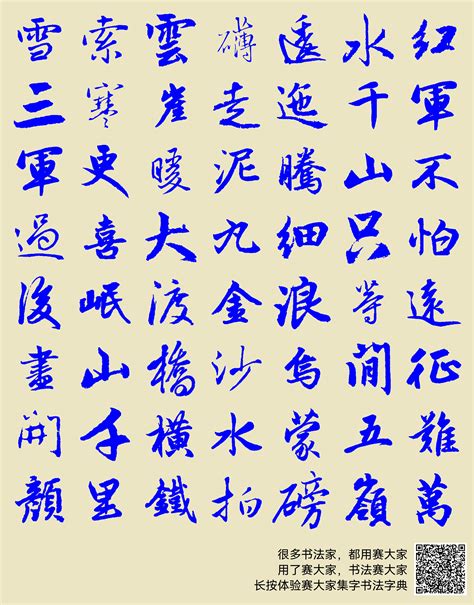 紅軍不怕遠征難萬
水千山只等閒五嶺
逶迤騰細浪烏蒙磅
礴走泥丸金沙水拍
雲崖暖大渡橋橫鐵
索寒更喜岷山千里
雪三軍過後盡開顏
很多书法家，都用赛大家
用了赛大家，书法赛大家
长按体验赛大家集字书法字典